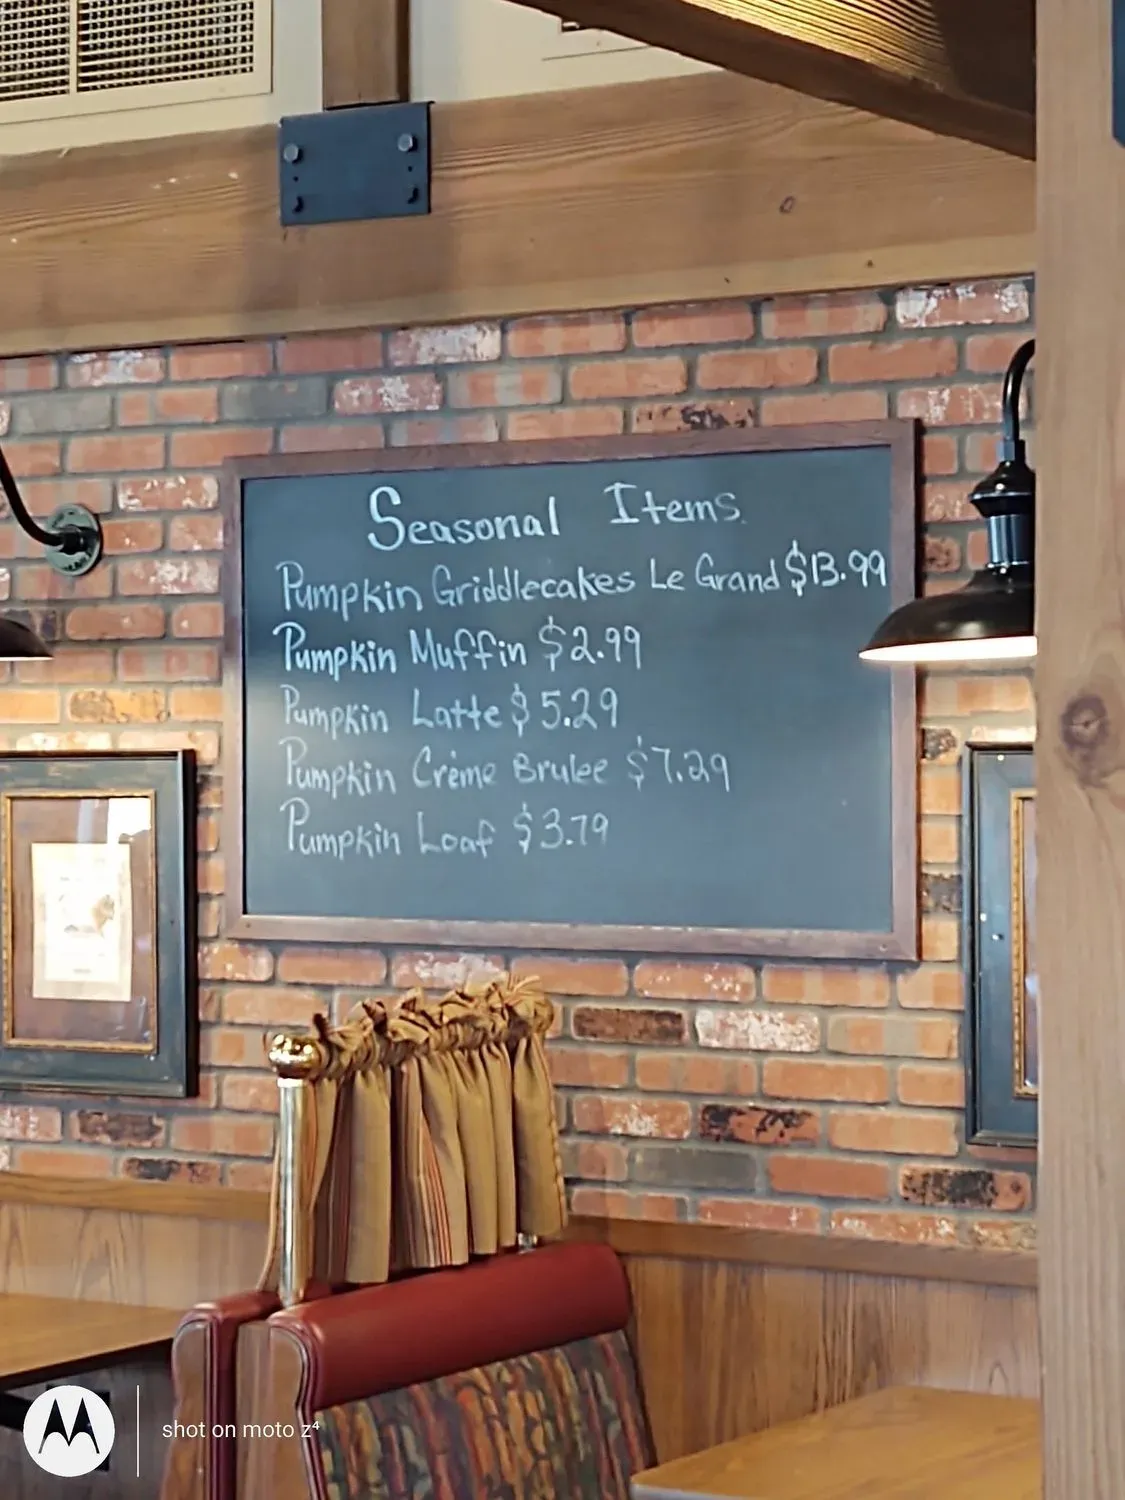 Seasonal Items
Pumpkin Griddlecakes Le Grand $13.99
Pumpkin Muffin $2.99
Pumpkin Latte $5.29
Pumpkin Crème Brulee $7.29
Pumpkin Loaf $3.79
shot on moto z⁴